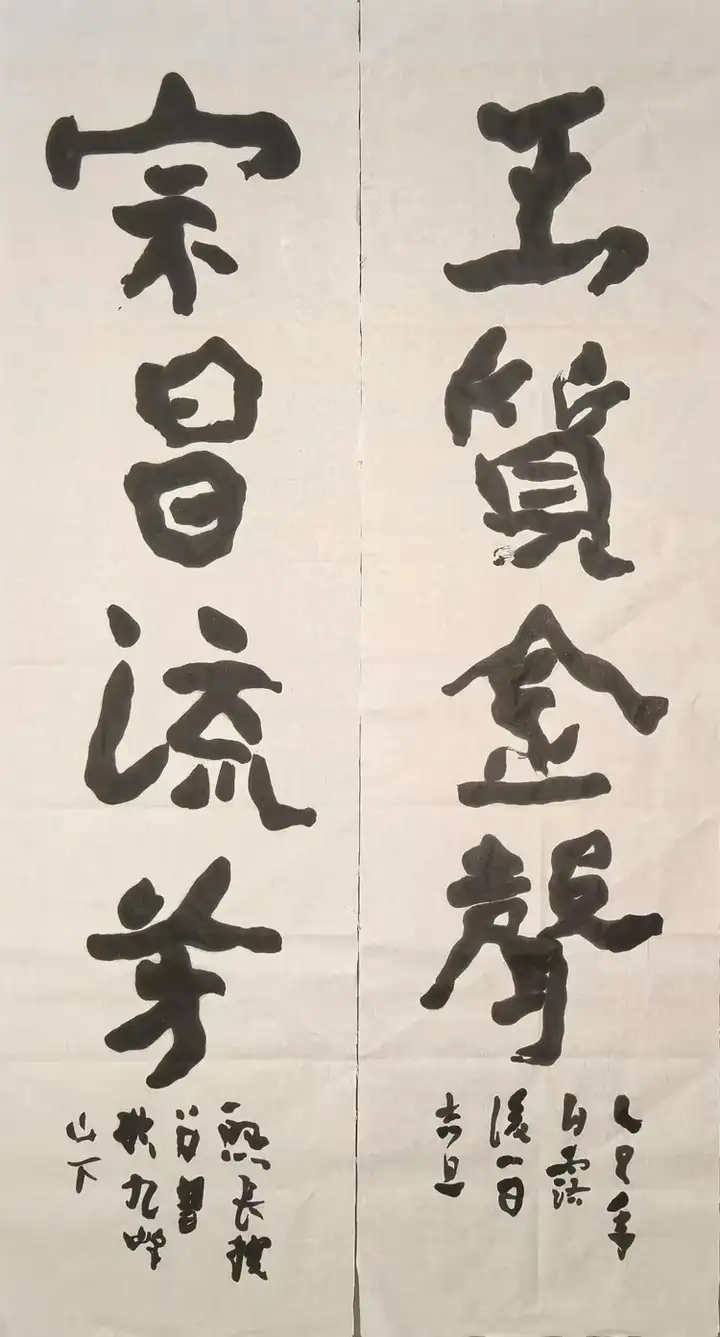 玉質金聲
乙巳年
白露
後一日
吉旦
宗昌流芳
熊長撲
並書
於九峰
山下